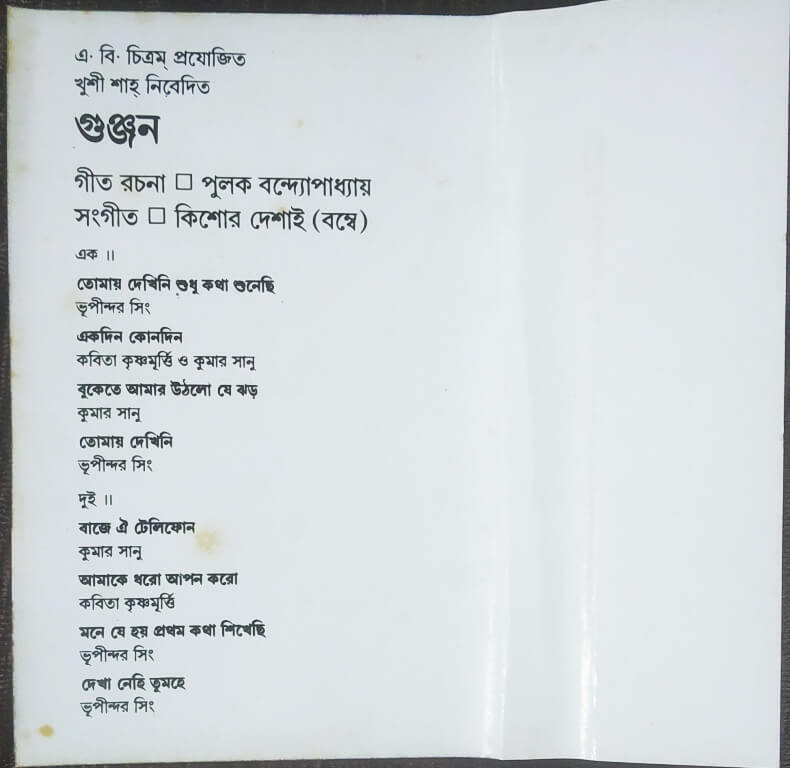 এ. বি. চিত্রম্ প্রযোজিত
খুশী শাহ্ নিবেদিত
গুঞ্জন
গীত রচনা □ পুলক বন্দ্যোপাধ্যায়
সংগীত □ কিশোর দেশাই (বম্বে)
এক ॥
তোমায় দেখিনি শুধু কথা শুনেছি
ভূপীন্দর সিং
একদিন কোনদিন
কবিতা কৃষ্ণমূর্ত্তি ও কুমার সানু
বুকেতে আমার উঠলো যে ঝড়
কুমার সানু
তোমায় দেখিনি
ভূপীন্দর সিং
দুই ॥
বাজে ঐ টেলিফোন
কুমার সানু
আমাকে ধরো আপন করো
কবিতা কৃষ্ণমূর্ত্তি
মনে যে হয় প্রথম কথা শিখেছি
ভূপীন্দর সিং
দেখা নেহি তুমহে
ভূপীন্দর সিং